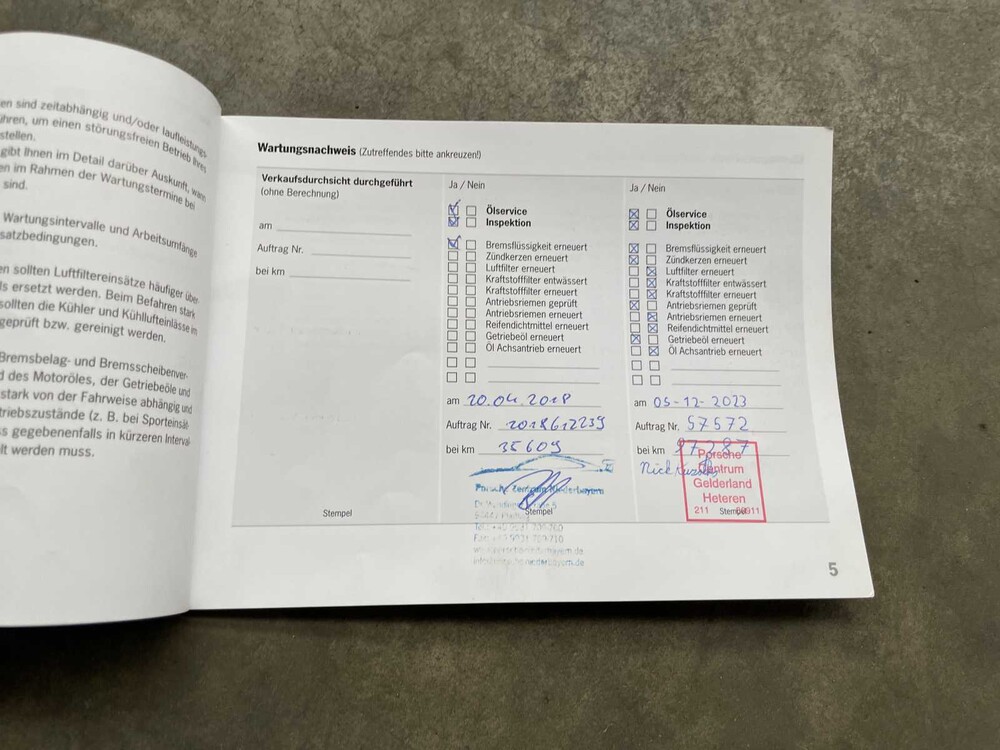 en sind zeitabhängig und/oder laufleistungs
ihren, um einen störungsfreien Betrieb Ihres
stellen.
gibt Ihnen im Detail darüber Auskunft, wann
en im Rahmen der Wartungstermine bei
sind.
Wartungsintervalle und Arbeitsumfänge
satzbedingungen.
en sollten Luftfiltereinsätze häufiger über
ls ersetzt werden. Beim Befahren stark
sollten die Kühler und Kühllufteinlässe im
geprüft bzw. gereinigt werden.
Bremsbelag- und Bremsscheibenver-
d des Motoröles, der Getriebeöle und
stark von der Fahrweise abhängig und
triebszustände (z. B. bei Sporteinsät
ss gegebenenfalls in kürzeren Interval
lt werden muss.
Wartungsnachweis (Zutreffendes bitte ankreuzen!)
Verkaufsdurchsicht durchgeführt
(ohne Berechnung)
am
Auftrag Nr.
bei km
Stempel
Ja / Nein
Ölservice
Inspektion
Bremsflüssigkeit erneuert
Zündkerzen erneuert
Luftfilter erneuert
Kraftstofffilter entwässert
Kraftstofffilter erneuert
Antriebsriemen geprüft
Antriebsriemen erneuert
Reifendichtmittel erneuert
Getriebeöl erneuert
Öl Achsantrieb erneuert
am 20.04.2018
Auftrag Nr. 2018612239
bei km 35609
Porsche Zentrum Niederbayern
Stempel
Ja / Nein
Ölservice
Inspektion
Bremsflüssigkeit erneuert
Zündkerzen erneuert
Luftfilter erneuert
Kraftstofffilter entwässert
Kraftstofffilter erneuert
Antriebsriemen geprüft
Antriebsriemen erneuert
Reifendichtmittel erneuert
Getriebeöl erneuert
Öl Achsantrieb erneuert
am 05-12-2023
Auftrag Nr. 57572
bei km 97287
Nick
Porsche
Zentrum
Gelderland
Heteren
211 00911
Stempel
5